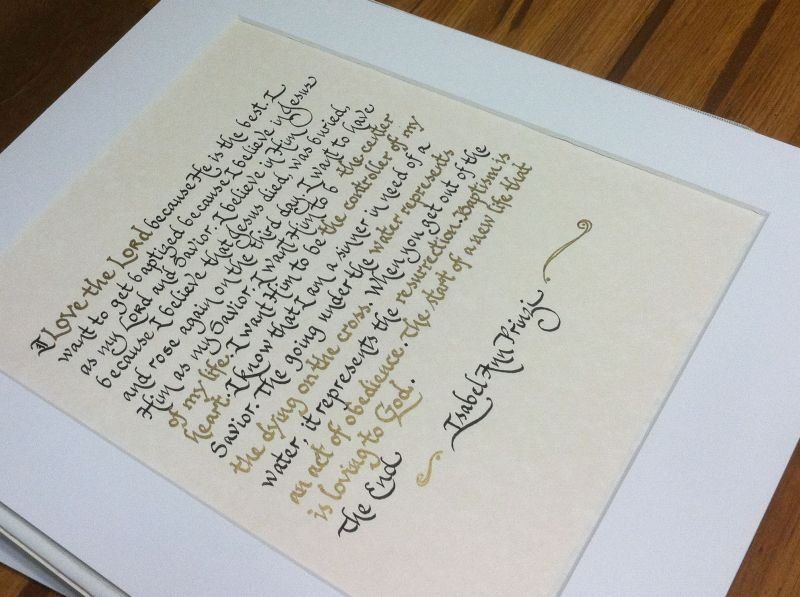 I Love the Lord because He is the best. I
want to get baptized because I believe in Jesus
as my Lord and Savior. I believe in Him
because I believe that Jesus died, was buried,
and rose again on the third day. I want to have
Him as my Savior. I want Him to b the center
of my life. I want Him to be the controller of my
heart. I know that I am a sinner in need of a
Savior. The going under the water represents
the dying on the cross. When you get out of the
water, it represents the resurrection. Baptism is
an act of obedience. The start of a new life that
is loving to God.
The End
Isabel Ann Prinzi